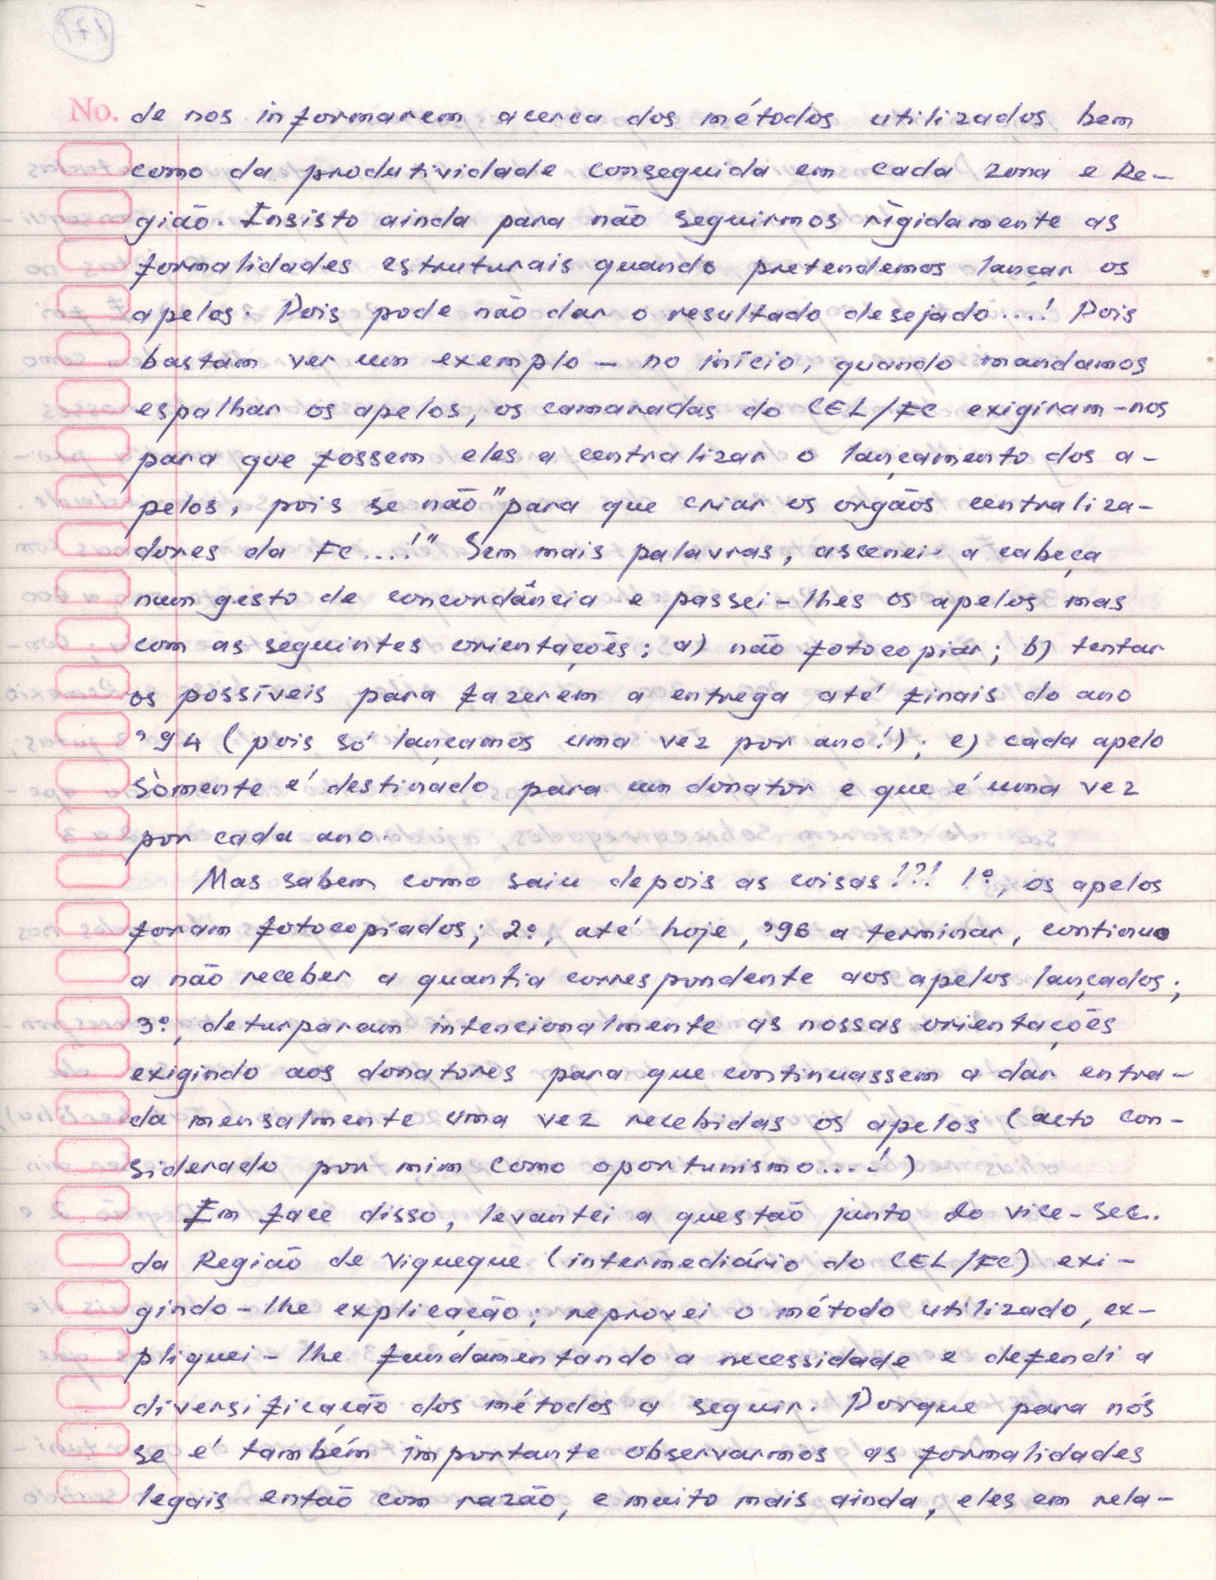 No. de nos informarem acerca dos métodos utilizados, bem
como da produtividade conseguida em cada zona e Re-
gião. Insisto ainda para não seguirmos rìgidamente as
formalidades estruturais quando pretendemos lançar os
apelos. Pois pode não dar o resultado desejado...! Pois
bastam ver um exemplo - no início, quando mandamos
espalhar os apelos, os camaradas do CEL/FC exigiram-nos
para que fossem eles a centralizar o lançamento dos a-
pelos, pois se não "para que criar os orgãos centraliza-
dores da FC...!" Sem mais palavras, ascenei a cabeça
num gesto de concordância e passei-lhes os apelos mas
com as seguintes orientações: a) não fotocopiar; b) tentar
os possíveis para fazerem a entrega até finais do ano
'94 (pois só lançamos uma vez por ano!); c) cada apelo
sòmente é destinado para um donator e que é uma vez
por cada ano.
Mas sabem como saiu depois as coisas!?! 1º, os apelos
foram fotocopiados; 2º, até hoje, '96 a terminar, continuo
a não receber a quantia correspondente aos apelos lançados;
3º, deturparam intencionalmente as nossas orientações
exigindo aos donatores para que continuassem a dar entra-
da mensalmente uma vez recebidas os apelos (acto con-
siderado por mim como oportunismo...!)
Em face disso, levantei a questão junto do vice-sec.
da Região de Viqueque (intermediário do CEL/FC) exi-
gindo-lhe explicação; reprovei o método utilizado, ex-
pliquei-lhe fundamentando a necessidade e defendi a
diversificação dos métodos a seguir. Porque para nós
se é também importante observarmos as formalidades
legais então com razão, e muito mais ainda, eles em rela-